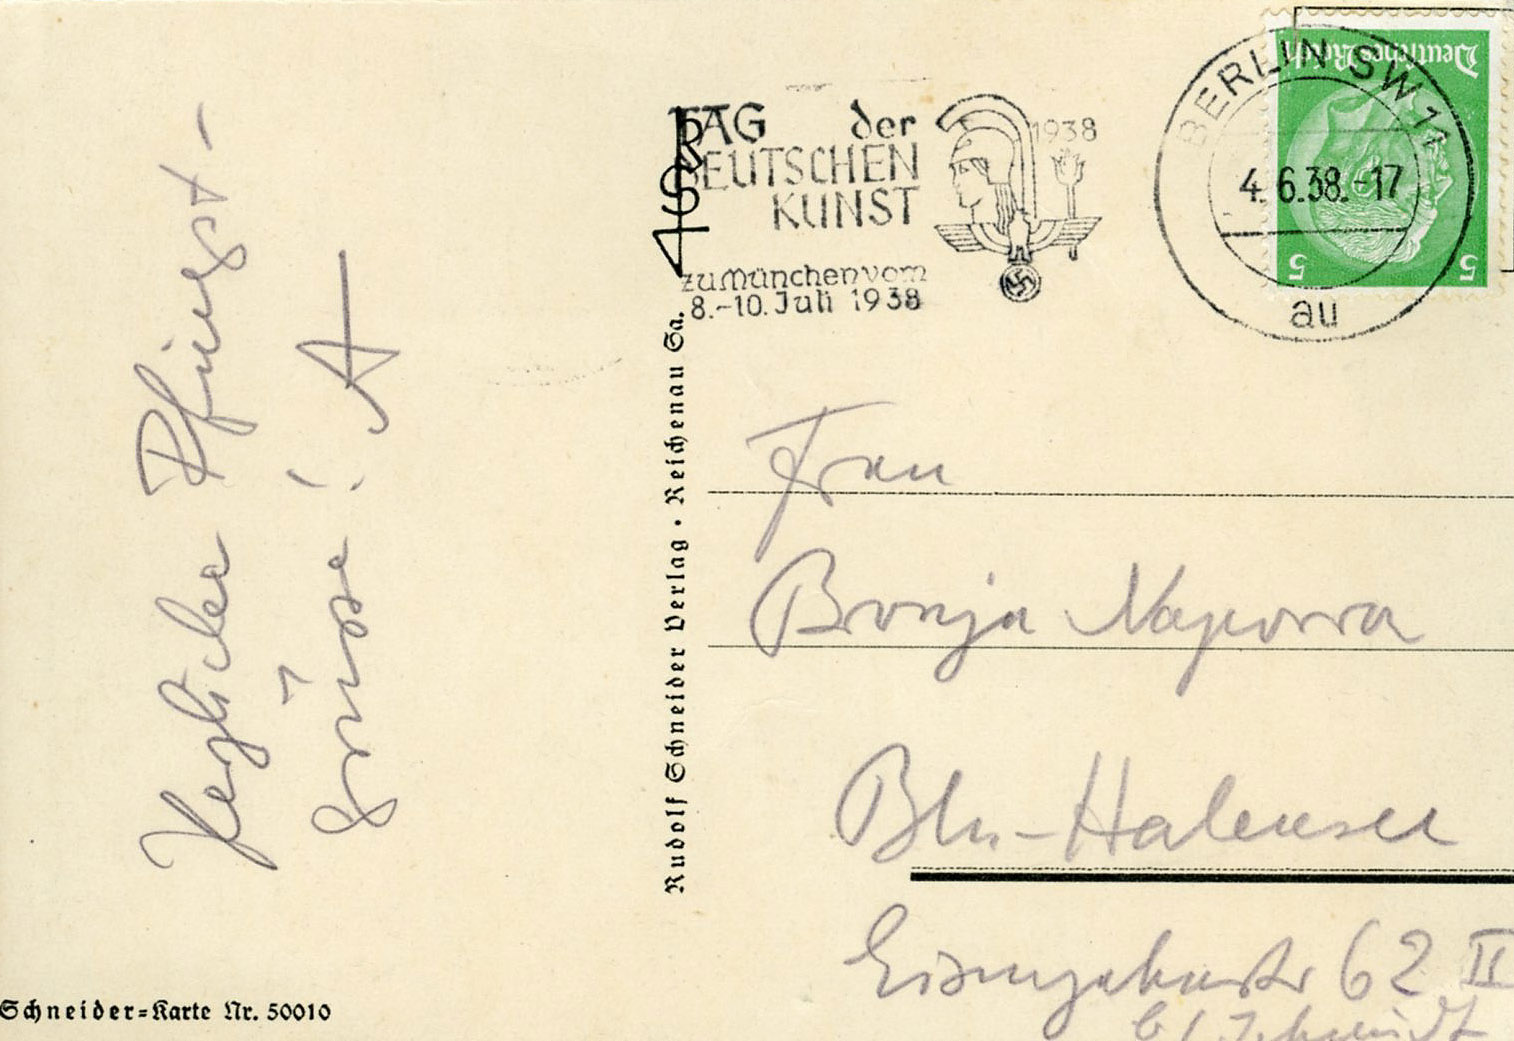 Herzliche Pfingst-
grüsse! A
TAG der
DEUTSCHEN
KUNST
zu München vom
8.-10. Juli 1938
1938
BERLIN SW 11
4.6.38.-17
au
Deutsches Reich
5 5
Rudolf Schneider Verlag · Reichenau Sa.
Frau
Bronja Naporra
Bln-Halensee
62 II
b/ Schmidt
Schneider-Karte Nr. 50010